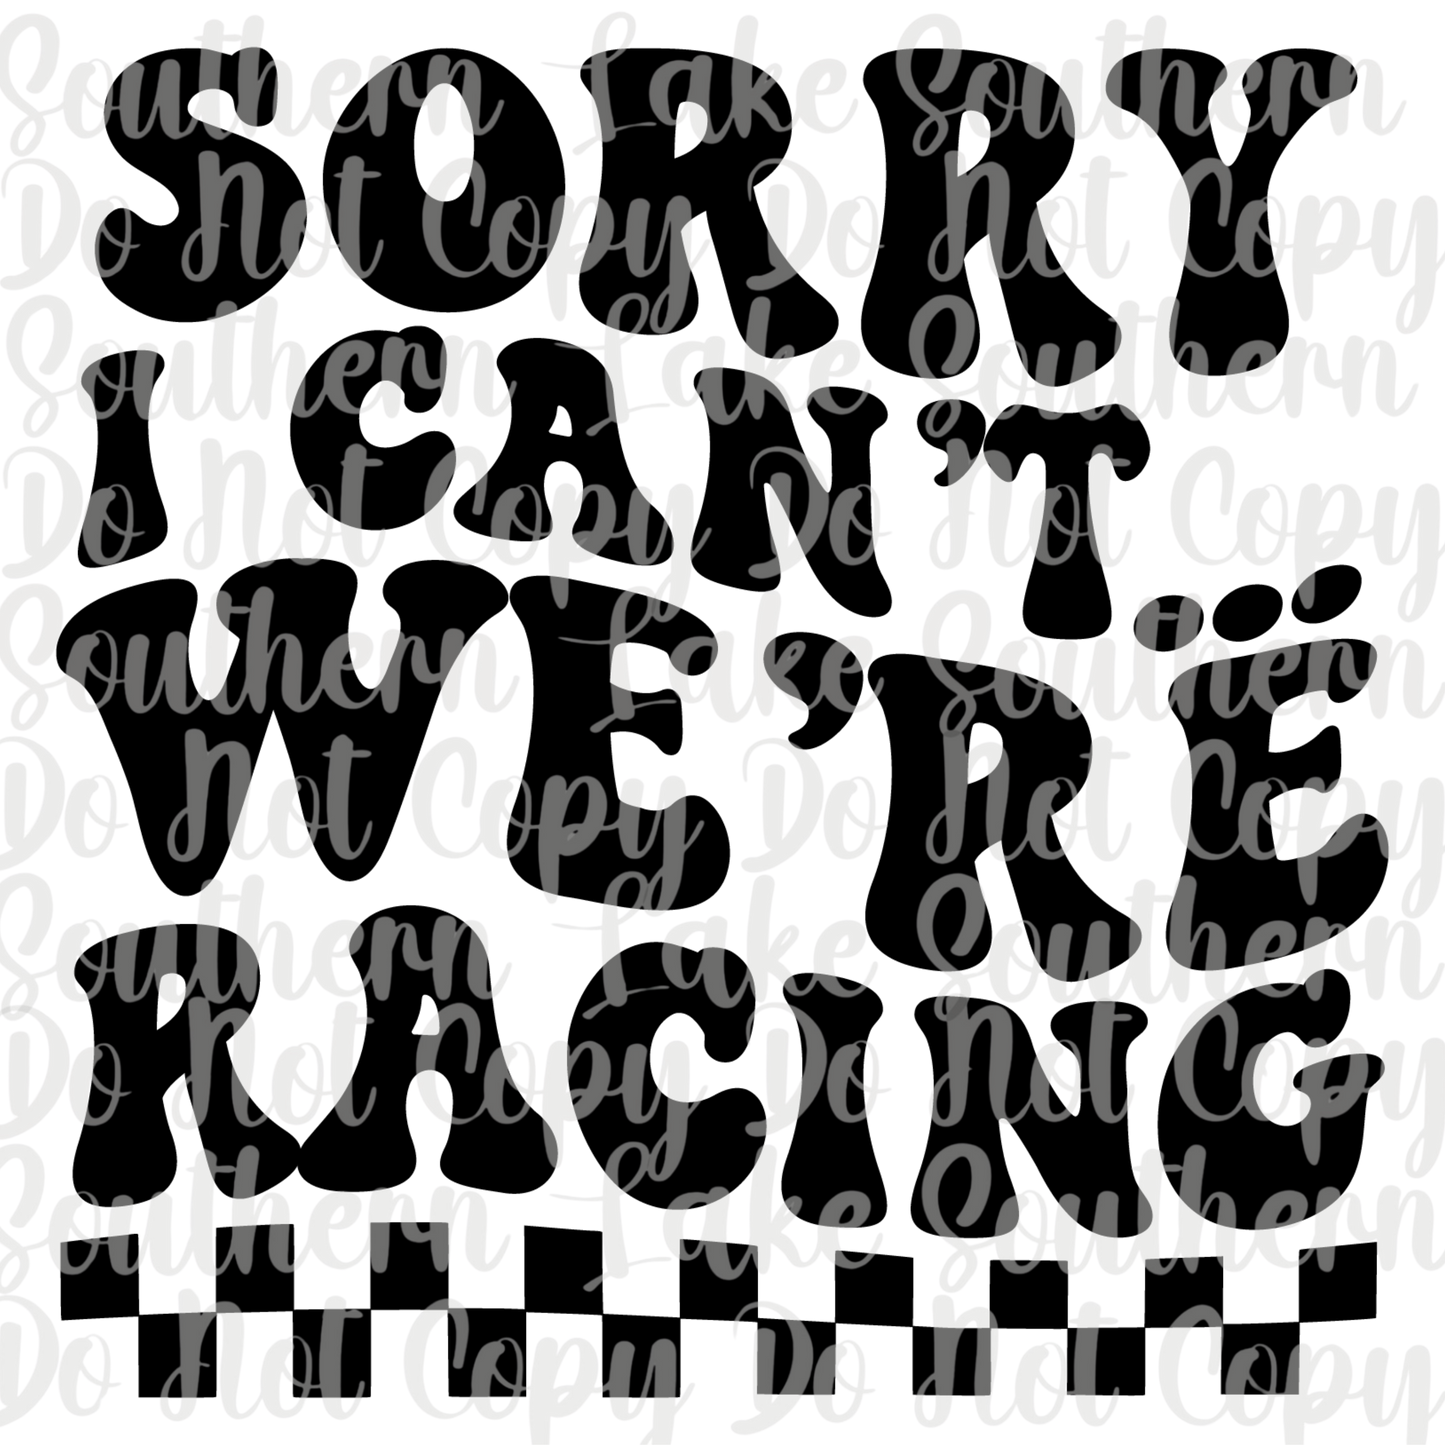 SORRY
I CAN'T...
WE'RE
RACING
Southern Lake Southern
Do Not Copy Do Not Copy
Southern Lake Southern
Do Not Copy Do Not Copy
Southern Lake Southern
Do Not Copy Do Not Copy
Southern Lake Southern
Do Not Copy Do Not Copy
Southern Lake Southern
Do Not Copy Do Not Copy